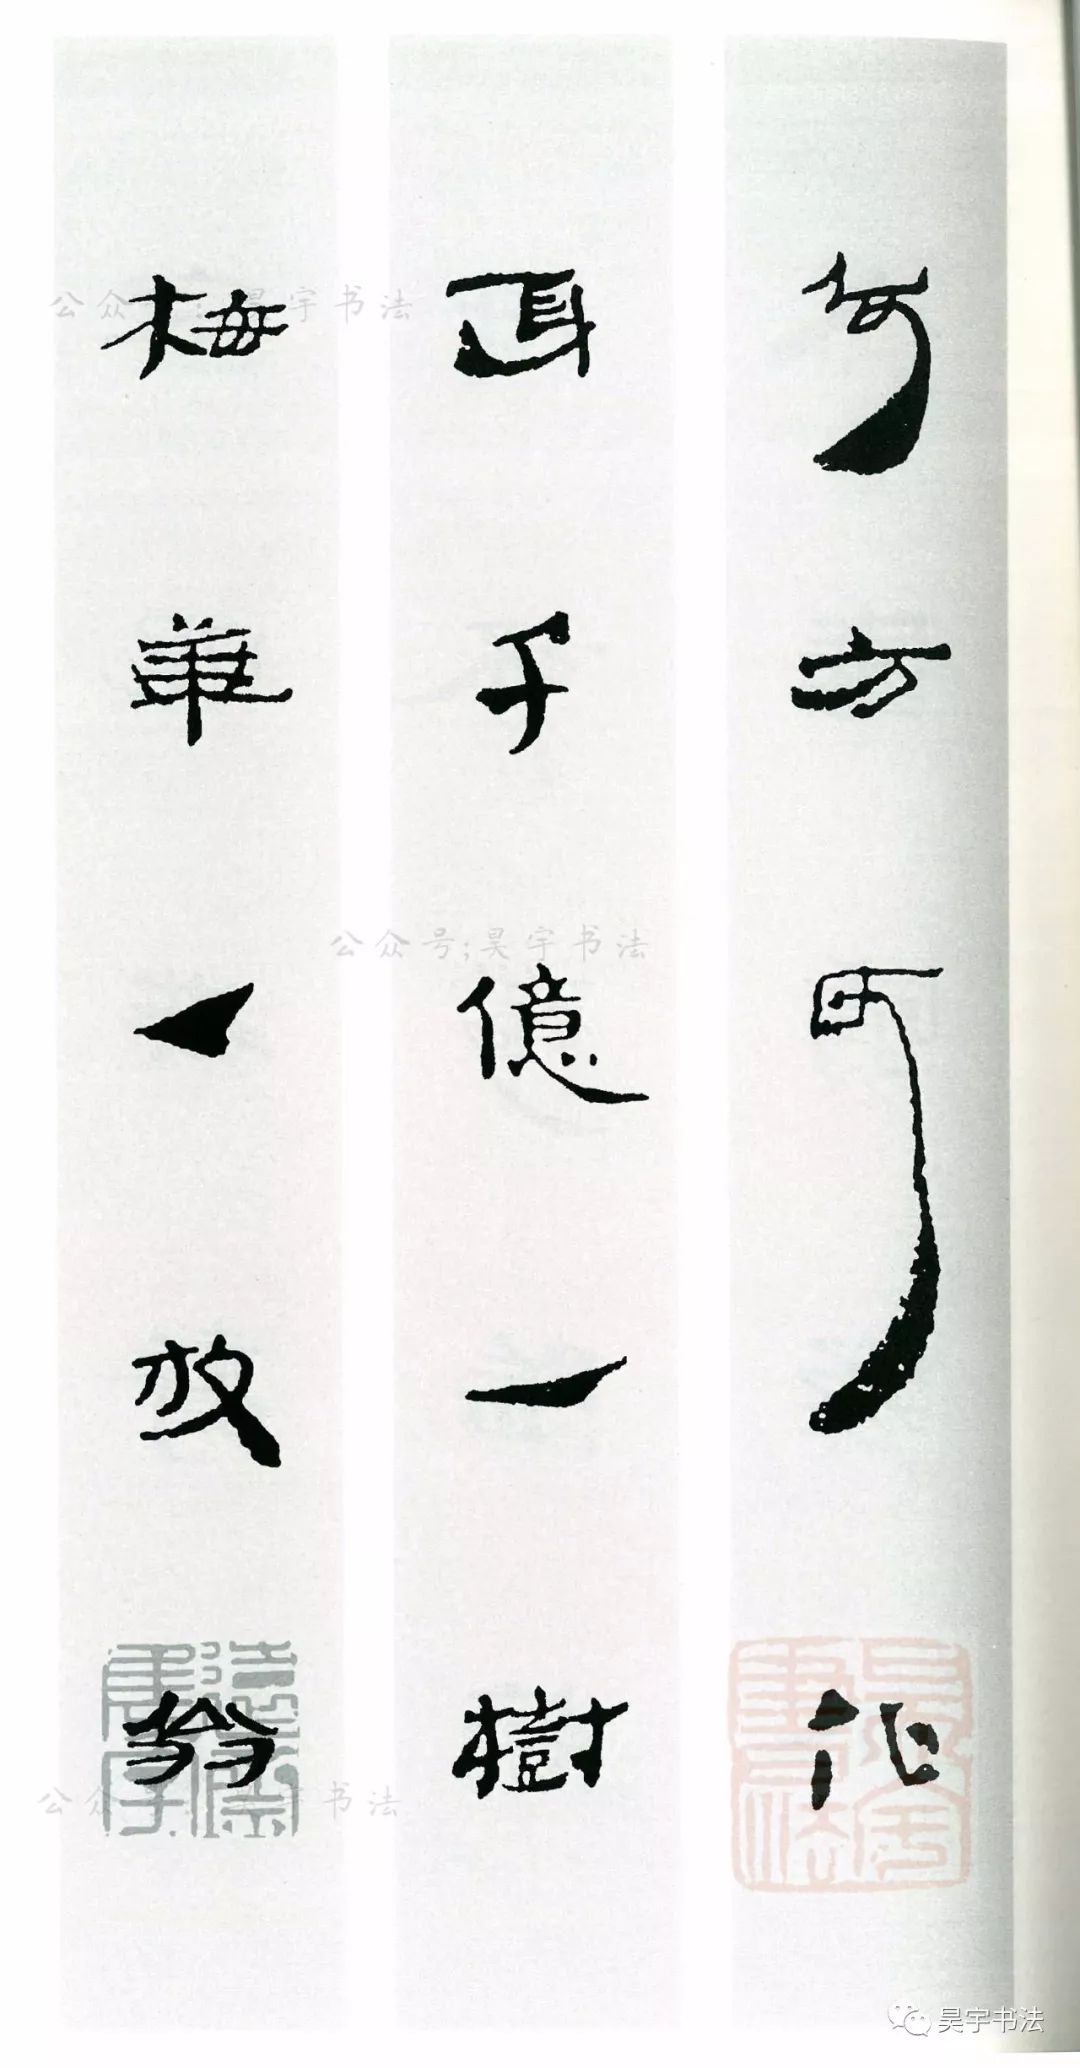 何方可化
身千億一樹
梅華一放翁
公众号:昊宇书法
公众号;昊宇书法
公众号:昊宇书法
昊宇书法
昊宇书法